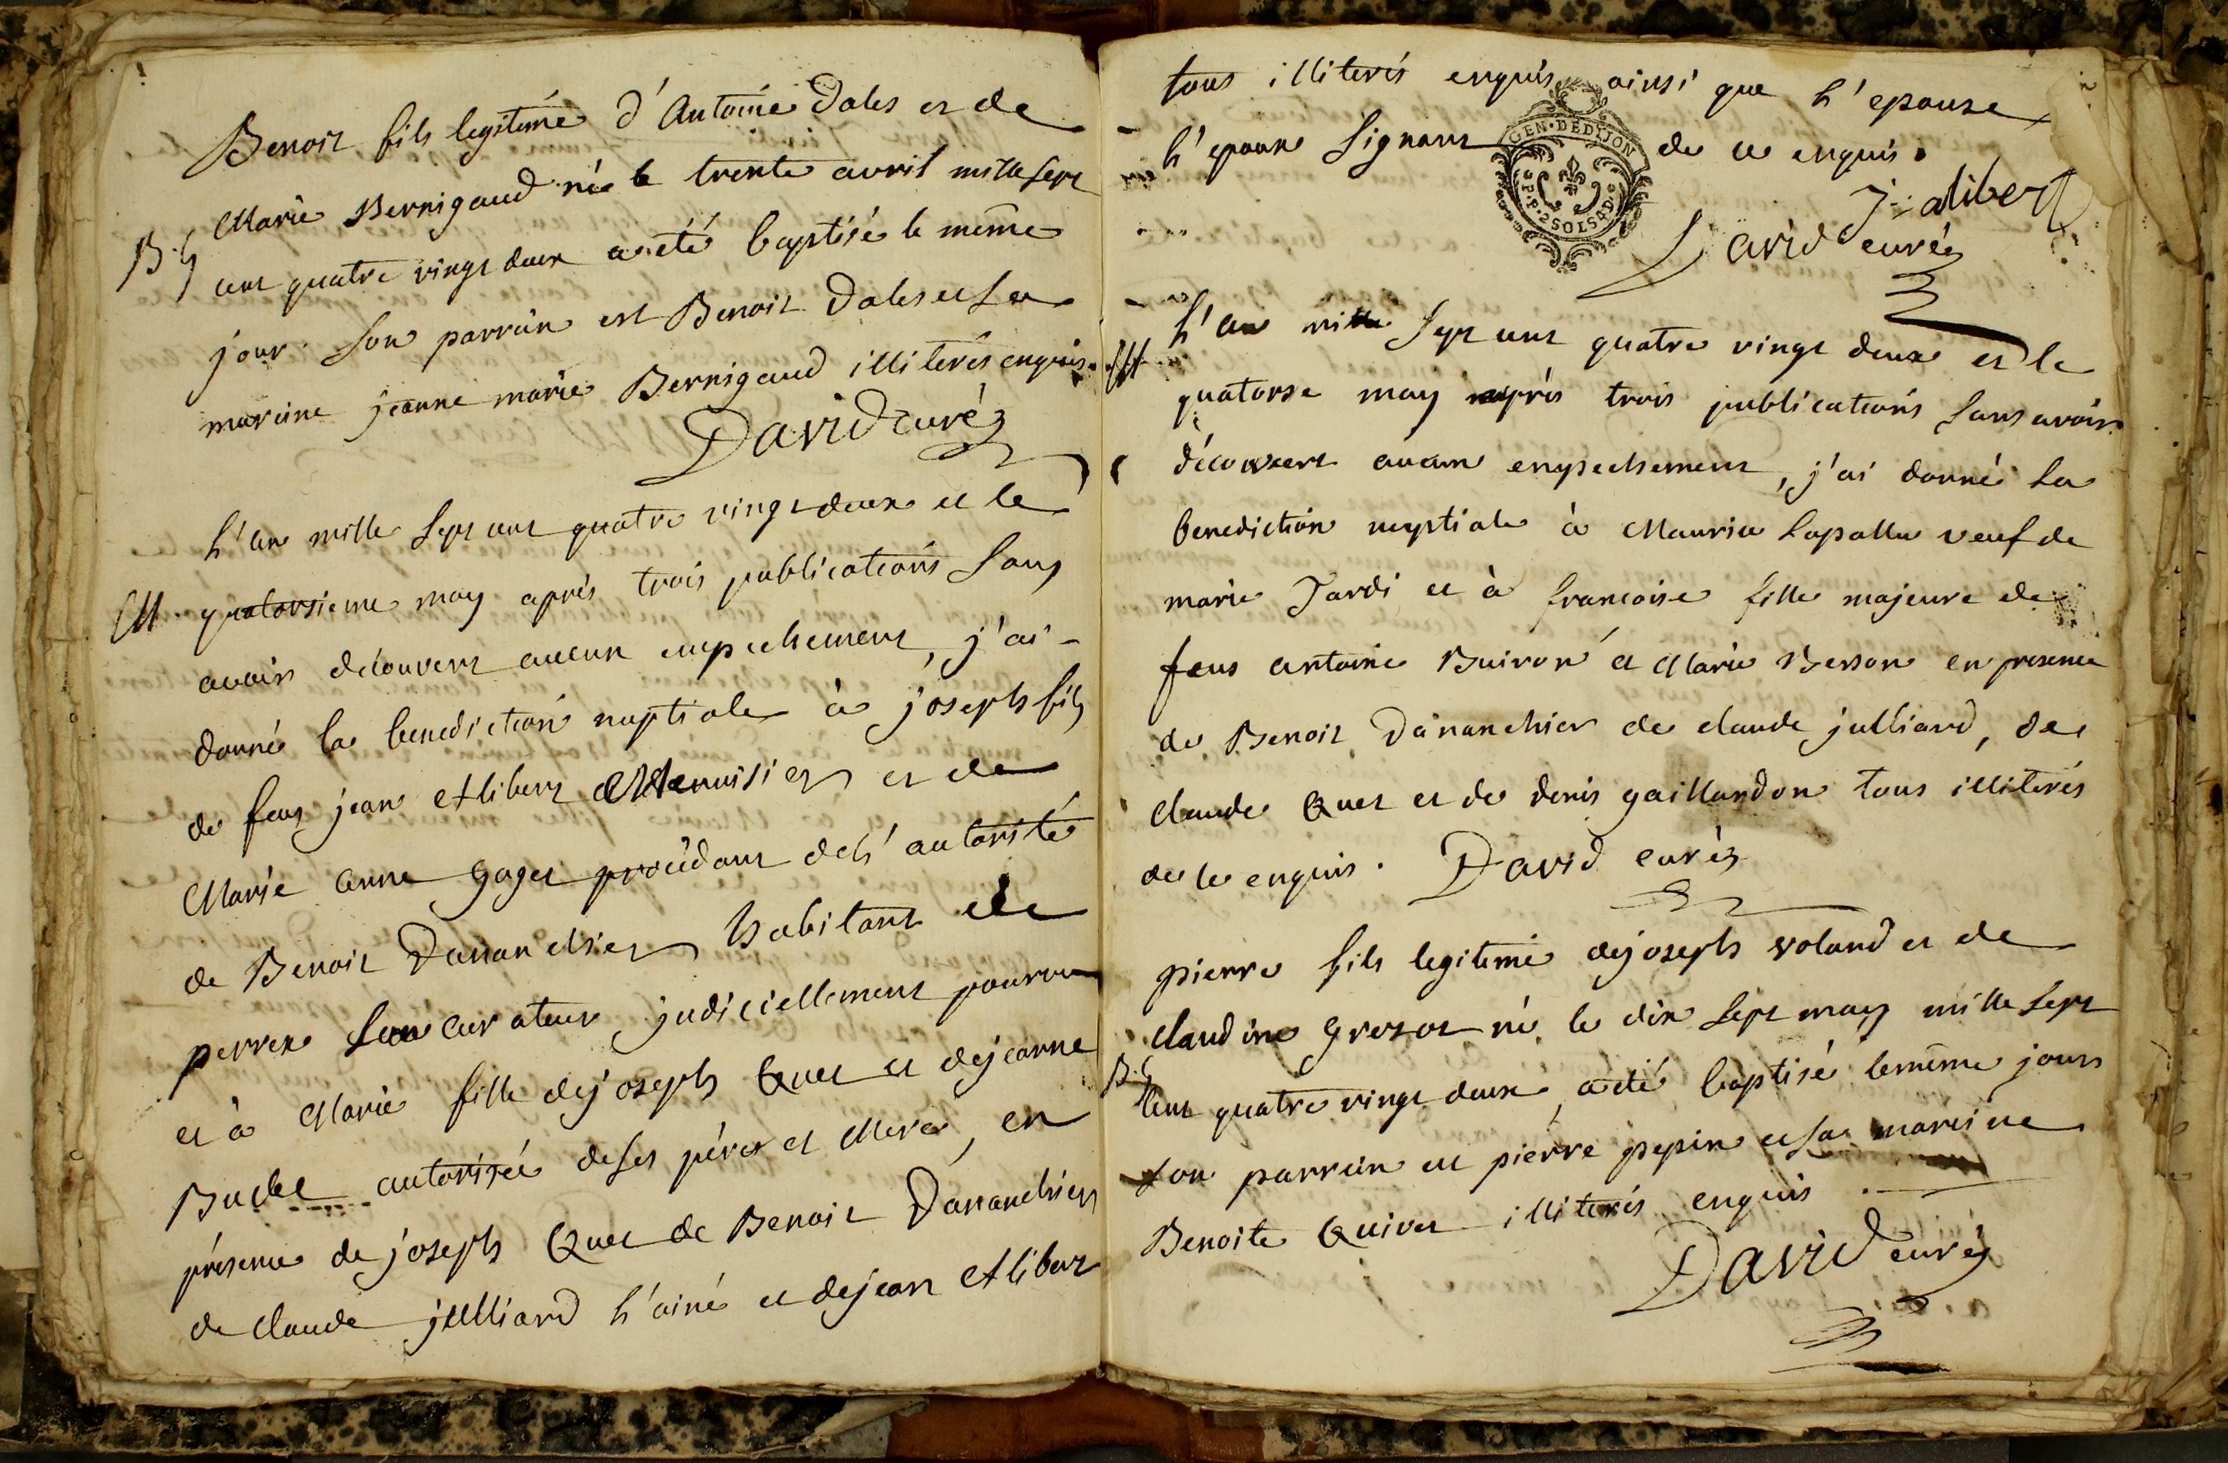 Benoit fils legitime d'Antoine Dales et de
Marie Bernigaud né le trente avril mille sept
B.
cent quatre vingt deux a été baptisé le même
jour. Son parrain est Benoit Dales et sa
maraine jeanne marie Bernigaud illiterés enquis.
David curé
L'an mille sept cent quatre vingt deux et le
M. quatorsieme may après trois publications sans
avoir découvert aucun empechement, j'ai
donné la benediction nuptiale à joseph fils
de feus jean Alibert Menuisier et de
Marie Anne Gaget procédant de l'autorité
de Benoit Dananchier habitant de
perrex son curateur judiciellement pourvu
et à Marie fille de joseph Quet et de jeanne
Buchet autorisée de ses père et Mere, en
présence de joseph Quet de Benoit Dananchier
de claude julliard l'ainé et de jean Alibert
tous illiterés enquis ainsi que l'epouse
l'epoux signant de ce enquis.
GEN. DE DIJON
P.P. 2 SOLS 4 D.
J. alibert
David curé
L'an mille sept cent quatre vingt deux et le
M
quatorse may après trois publications sans avoir
découvert aucun empechement, j'ai donné la
benediction nuptiale à Maurice Lapallu veuf de
marie Jardi et à francoise fille majeure de
feus antoine Buiron et Marie Besson en presence
de Benoit Dananchier de claude julliard, de
claude Quet et de denis gaillardon tous illiterés
de ce enquis. David curé
pierre fils legitime de joseph voland et de
claudine Grozot né le dix sept may mille sept
B.
cent quatre vingt deux, a été baptisé le même jour
son parrain est pierre pepin et sa maraine
Benoite Quivet illiterés enquis.
David curé